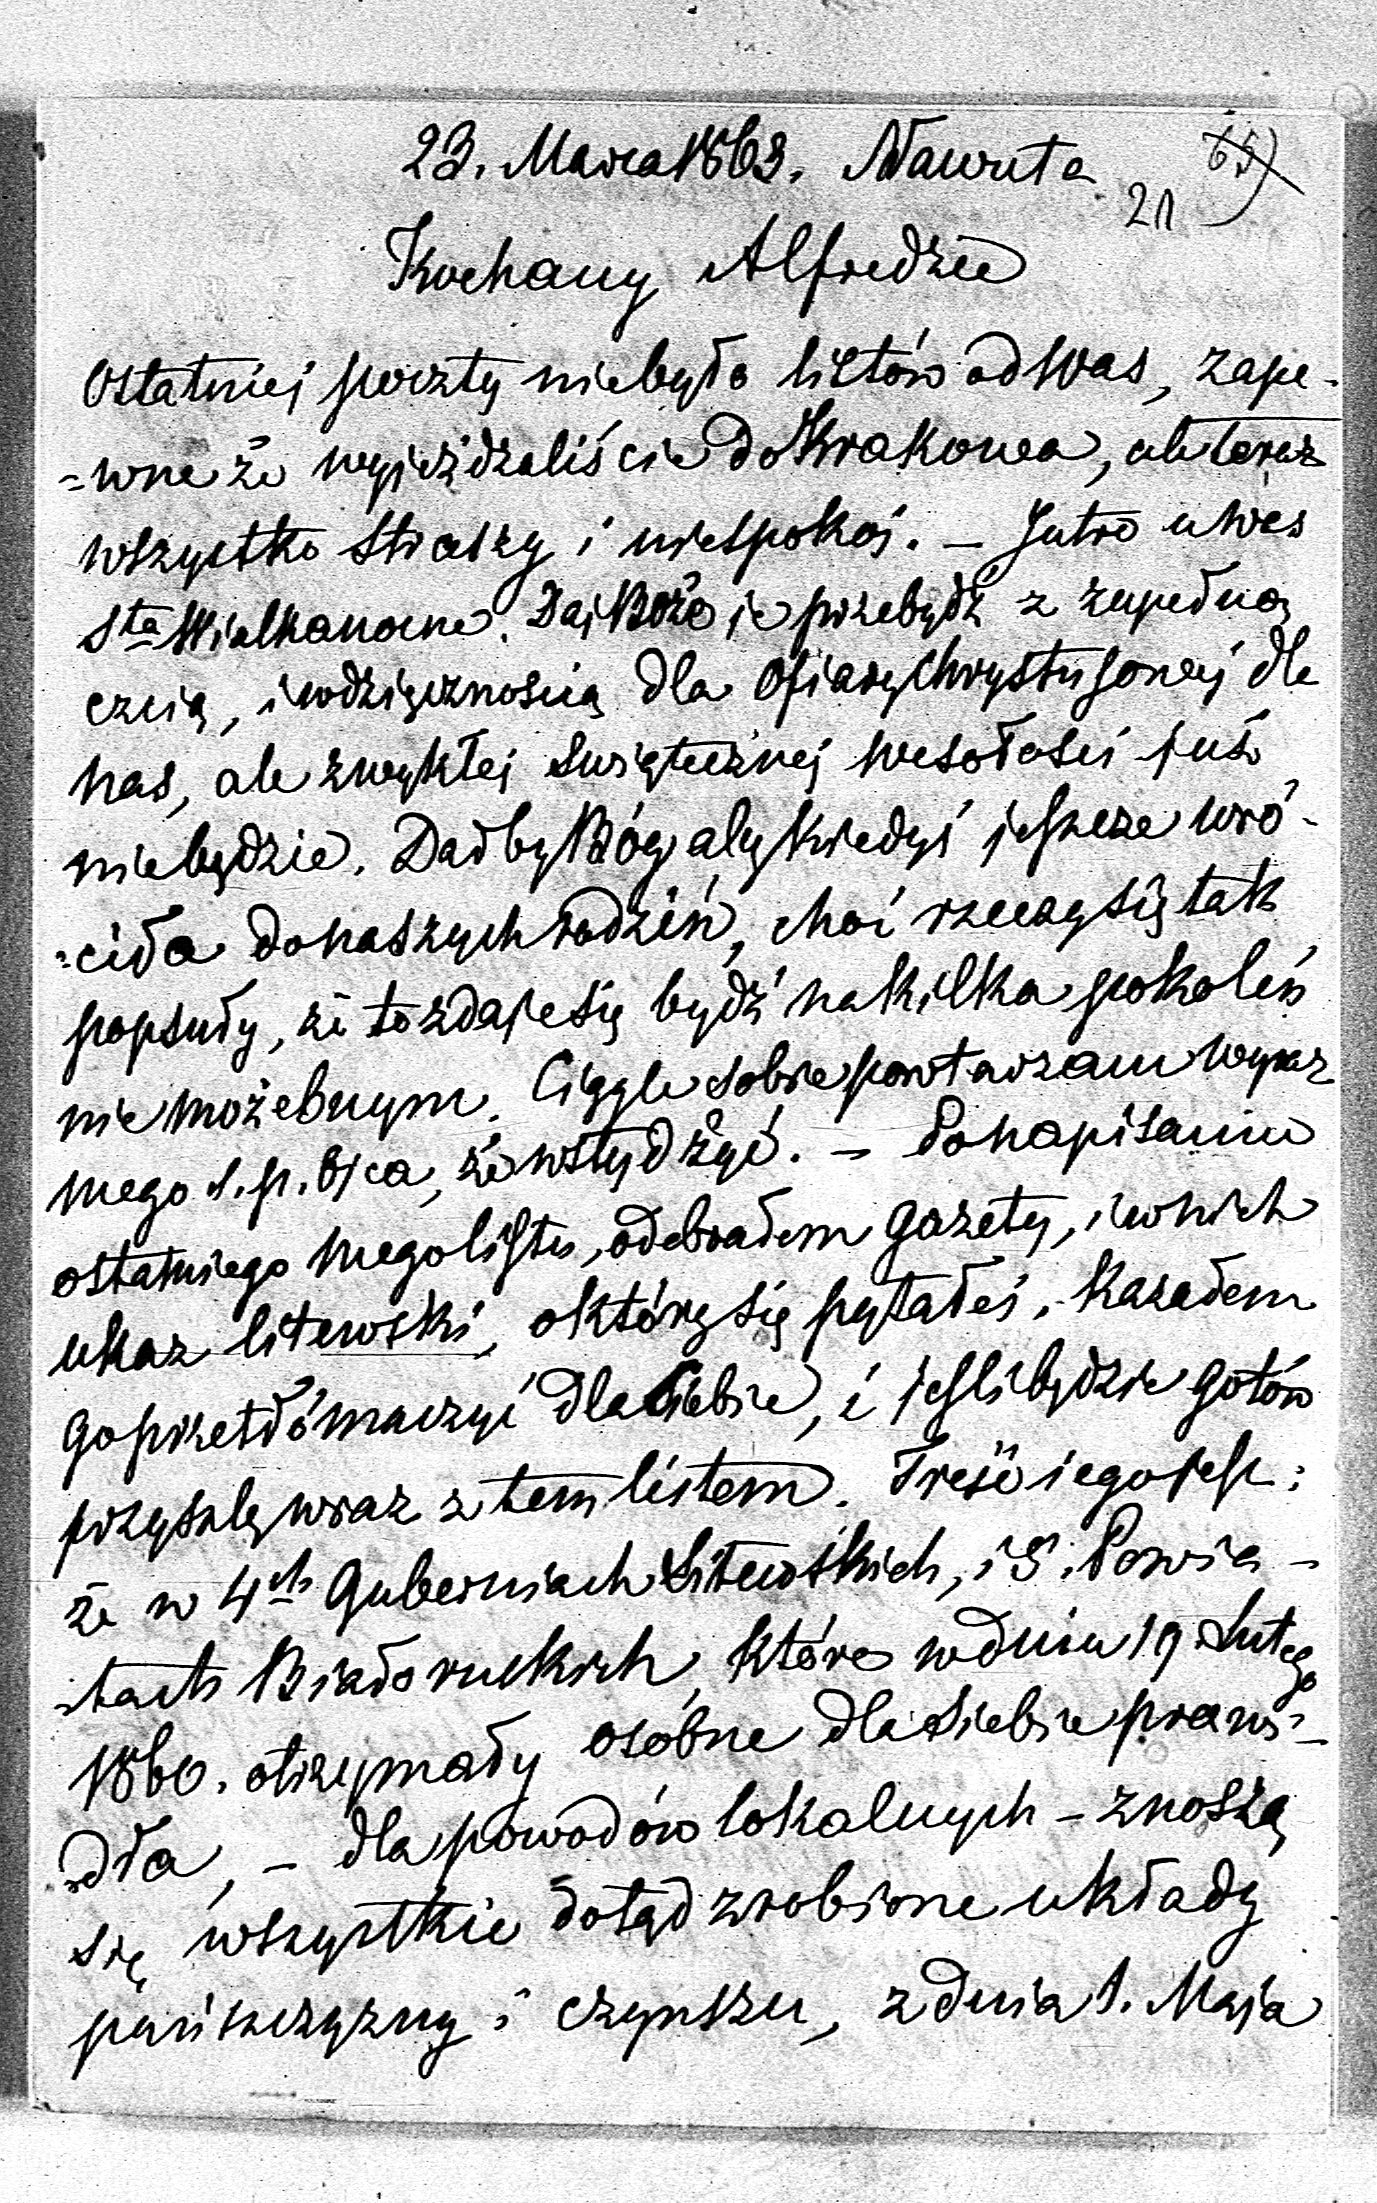 23. Marca 1863. Nawuta
65)
21
Kochany Alfredzie
Ostatniej poczty niebyło listów od Was, zape-
=wne że wyjeżdżaliście do Krakowa, ale teraz
wszystko straszy i niespokoi. – Jutro u Was
Sta Wielkanocne. Daj Boże je przebydź z zupełną
czcią, i wdzięcznością dla Ofiary Chrystusowej dla
nas, ale zwykłej Swiątecznej wesołości już
niebędzie. Dałby Bóg aby kiedyś jeszcze wró-
=ciła do naszych rodzin, choć rzeczy się tak
popsuły, że to zdaje się bydź na kilka pokoleń
nie możebnym. Ciągle sobie powtarzam wyraz
mego s. p. Ojca, że wstyd żyć. – Po napisaniu
ostatniego mego listu, odebrałem gazety, i w nich
ukaz litewski, o który się pytałeś. Kazałem
go przetłómaczyć dla Ciebie, i jeśli będzie gotów
przyszlę wraz z tem listem. Treść iego jest:
że w 4ch Guberniach Litewskich, i 5. Powia-
=tach Białoruskich, które w dniu 19 Lutego
1860. otrzymały osóbne dla siebie prawi-
=dła, – dla powodów lokalnych – znoszą
się wszystkie dotąd zrobione układy
pańszczyzny i czynszu, z dnia 1. Maja